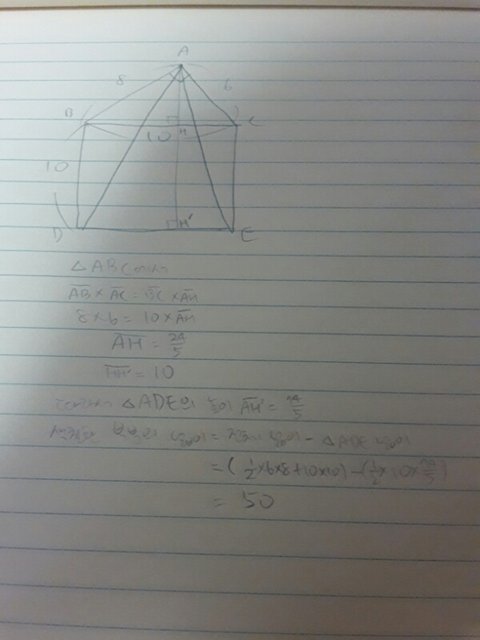 A
8
6
B
C
10
H
10
D
H'
E
△ABC에서
AB × AC = BC × AH
8×6 = 10×AH
AH = 24/5
HH' = 10
△ADE의 높이 AH' =
넓이 = 넓이 - △ADE 넓이
= (1/2×6×8+10×10) - (1/2×10×
= 50